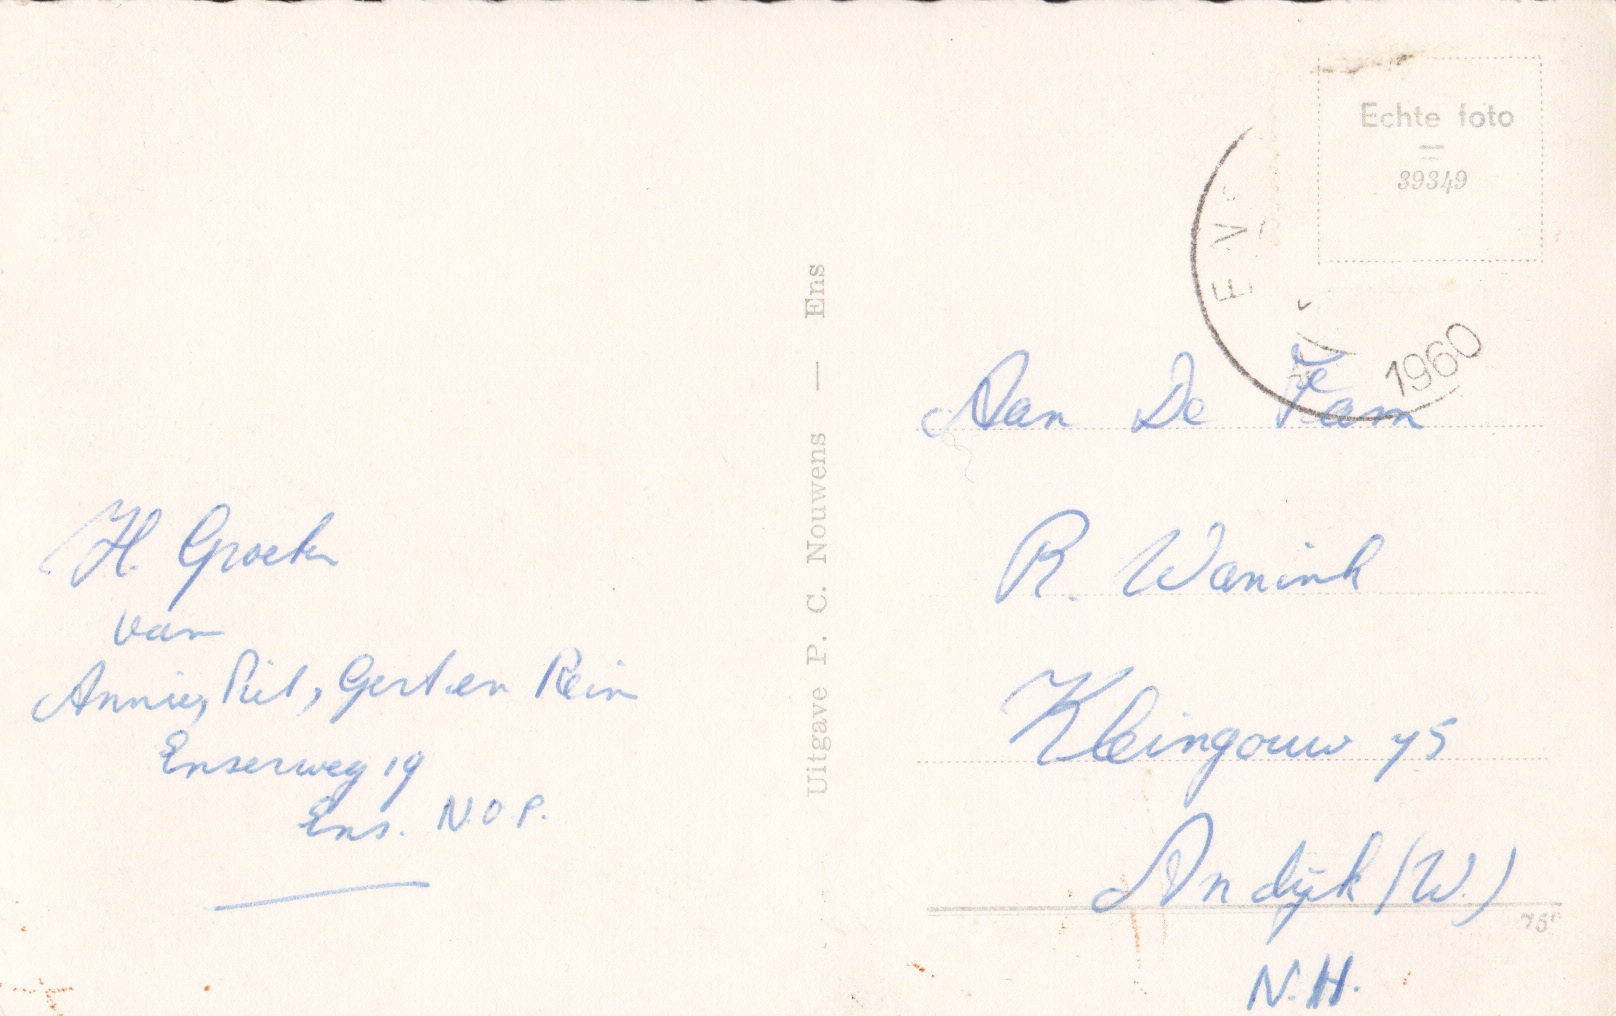 H. Groeten
van
Annie, Riet, Gert en Rein
Enserweg 19
Ens. N.O.P.
Uitgave P. C. Nouwens — Ens
Echte foto
39349
1960
Aan De Fam
R. Wanink
Kleingouw 75
Andijk (W.)
N.H.